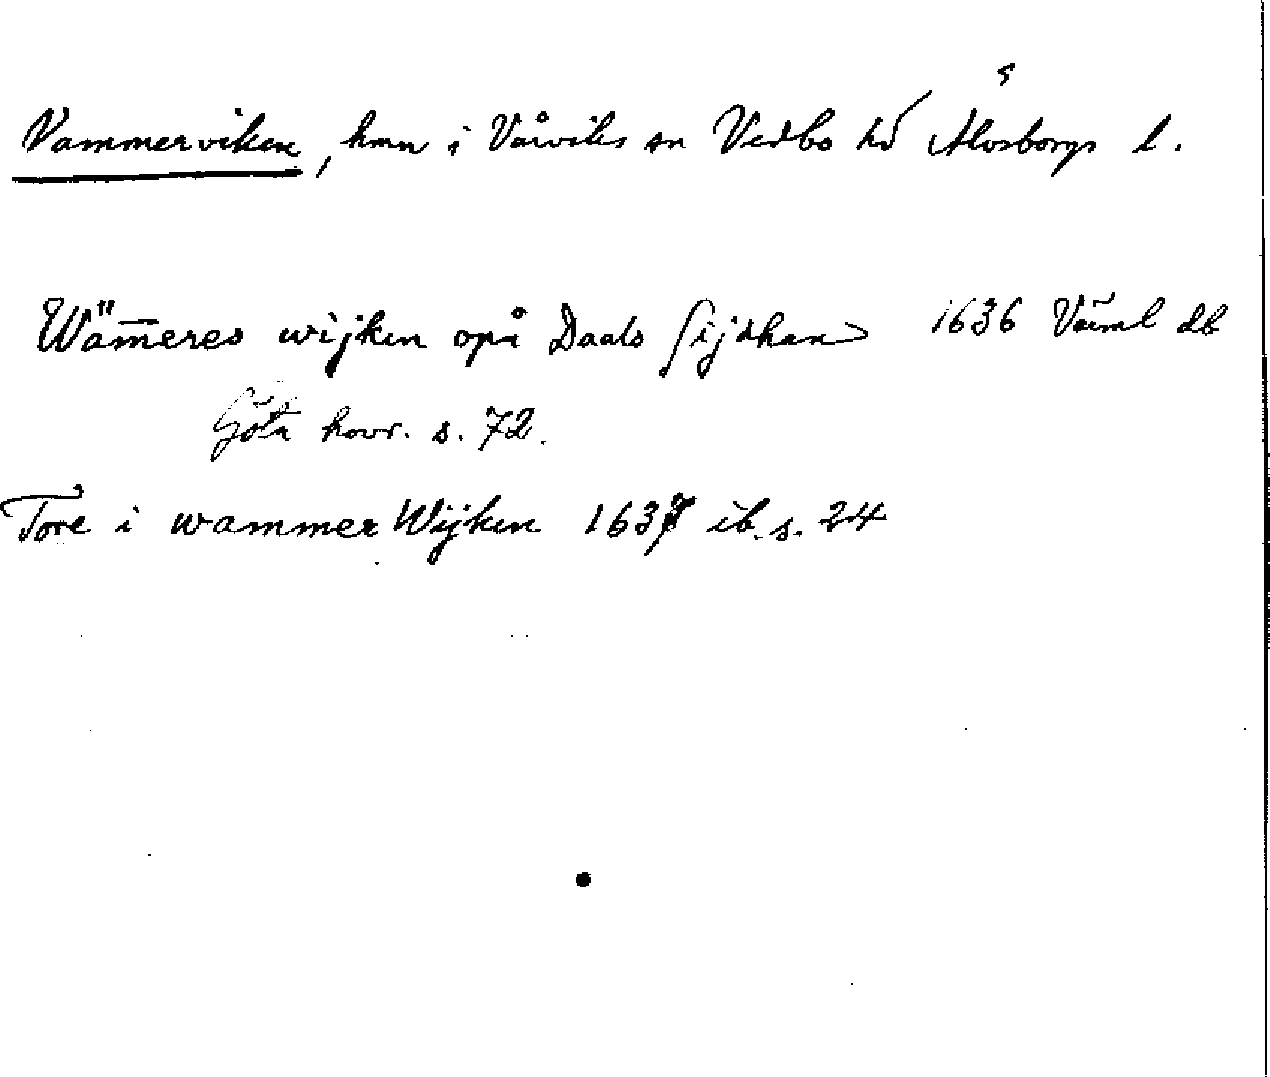 Vammerviken, hmn i Vårviks sn Vedbo hd Älvsborgs l.
Wämeres wijken opå Daals sijdhan 1636 Värml db
Göta hovr. s. 72.
Tore i wammer Wijken 1637 ib. s. 24